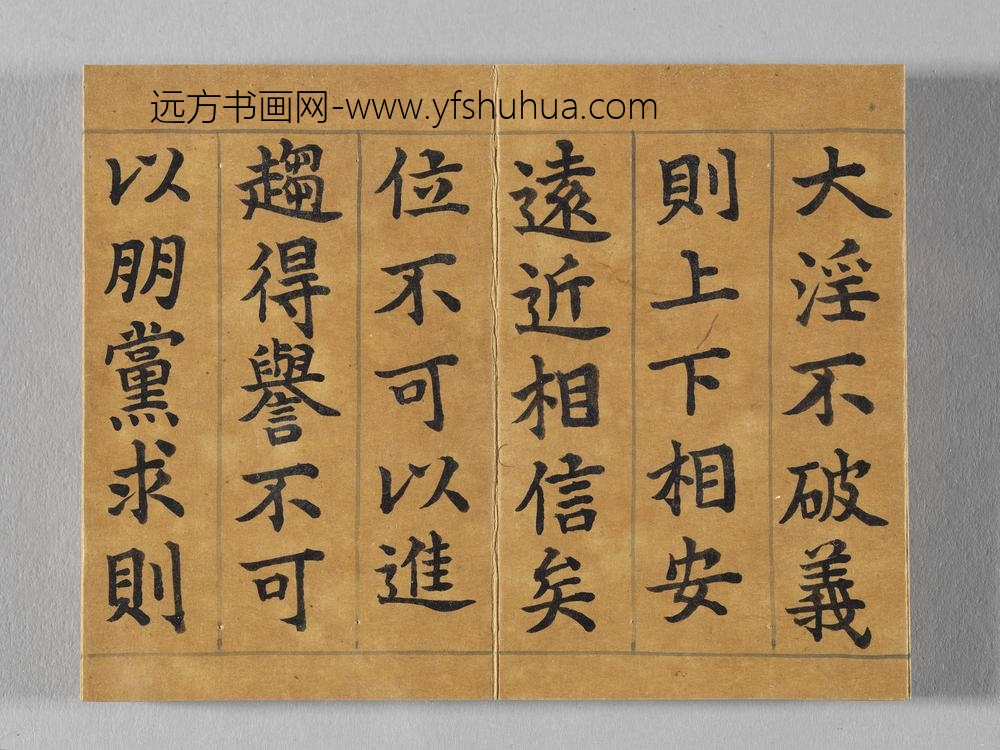 远方书画网-www.yfshuhua.com
大淫不破義
則上下相安
遠近相信矣
位不可以進
趨得譽不可
以朋黨求則